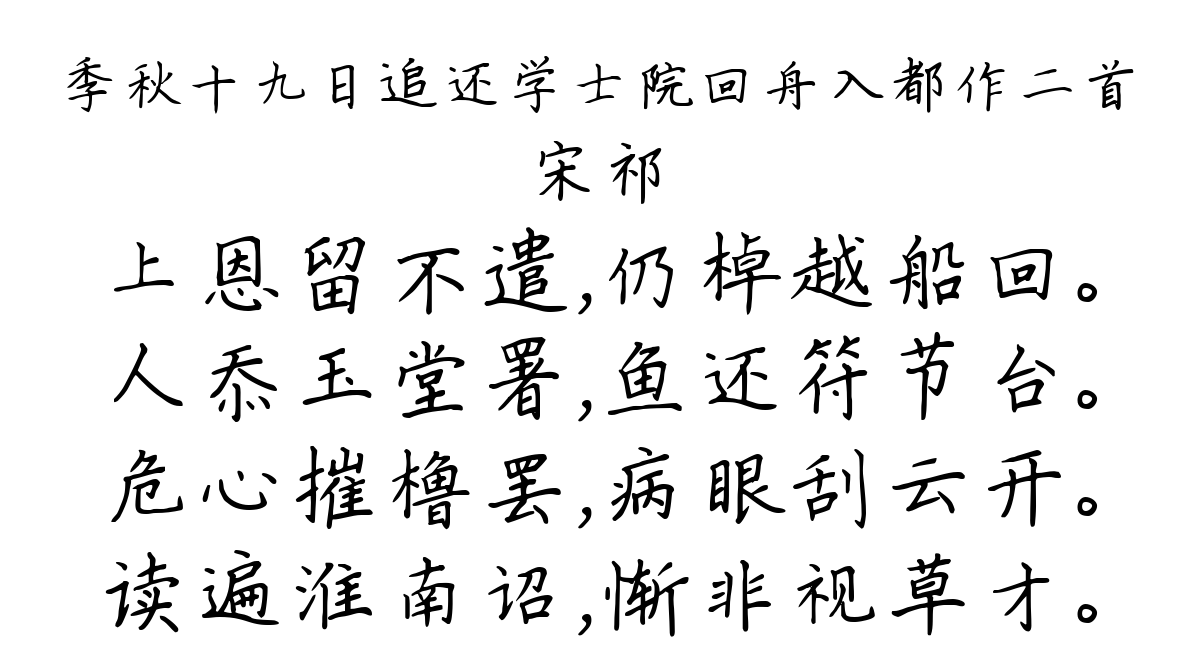 季秋十九日追还学士院回舟入都作二首
宋祁
上恩留不遣,仍棹越船回。
人忝玉堂署,鱼还符节台。
危心摧橹罢,病眼刮云开。
读遍淮南诏,惭非视草才。